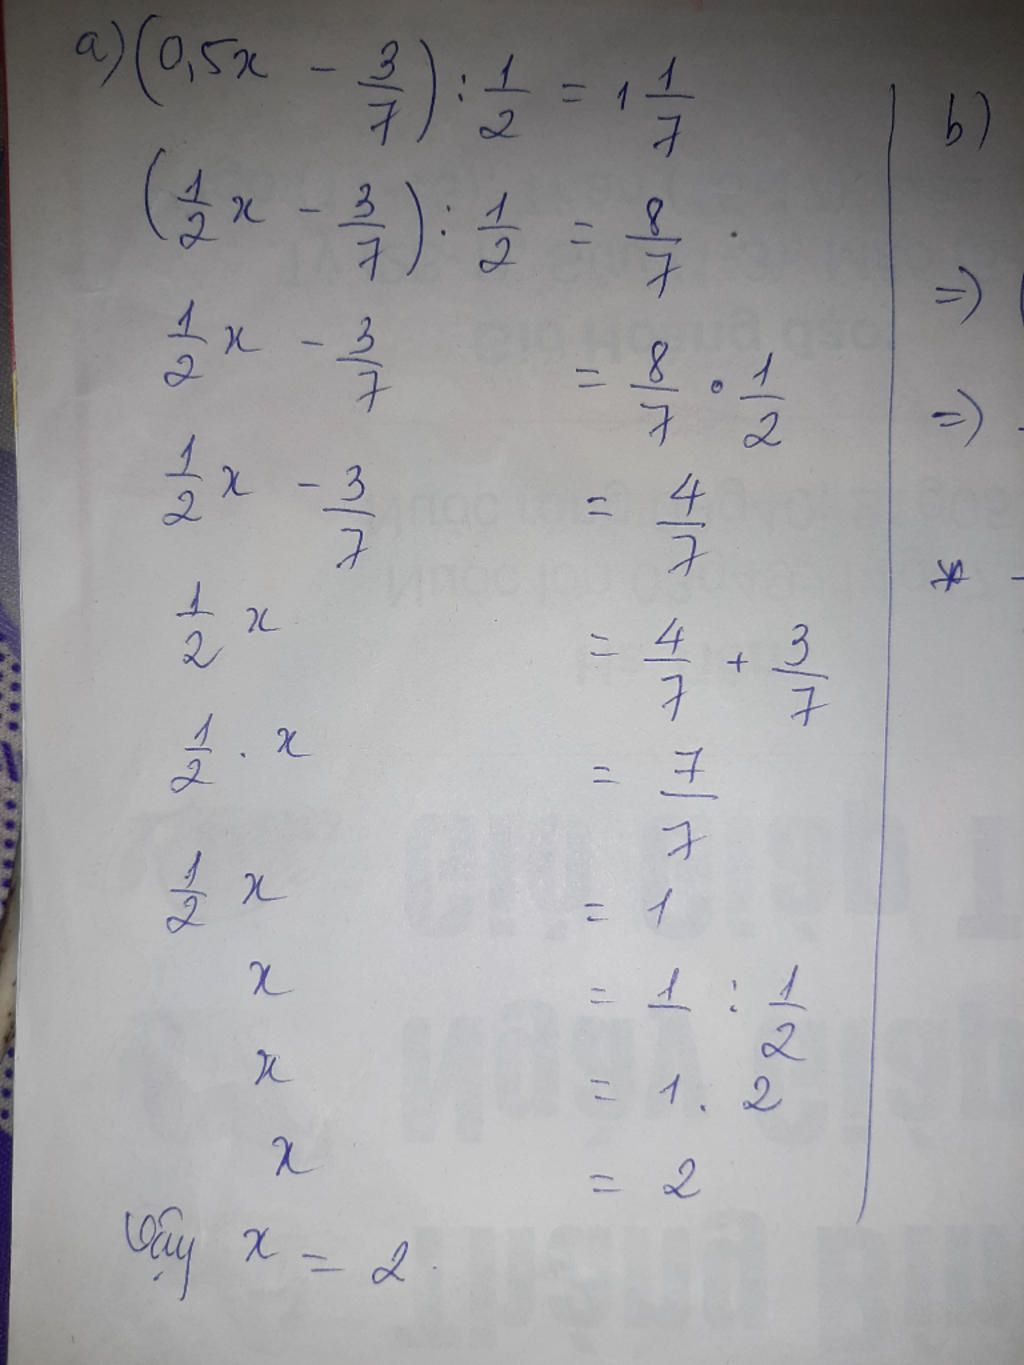 a) (0,5x - 3/7) : 1/2 = 1 1/7
(1/2 x - 3/7) : 1/2 = 8/7
1/2 x - 3/7 = 8/7 . 1/2
1/2 x - 3/7 = 4/7
1/2 x = 4/7 + 3/7
1/2 . x = 7/7
1/2 x = 1
x = 1 : 1/2
x = 1 . 2
x = 2
Vậy x = 2.
b)
=> (
=>
*